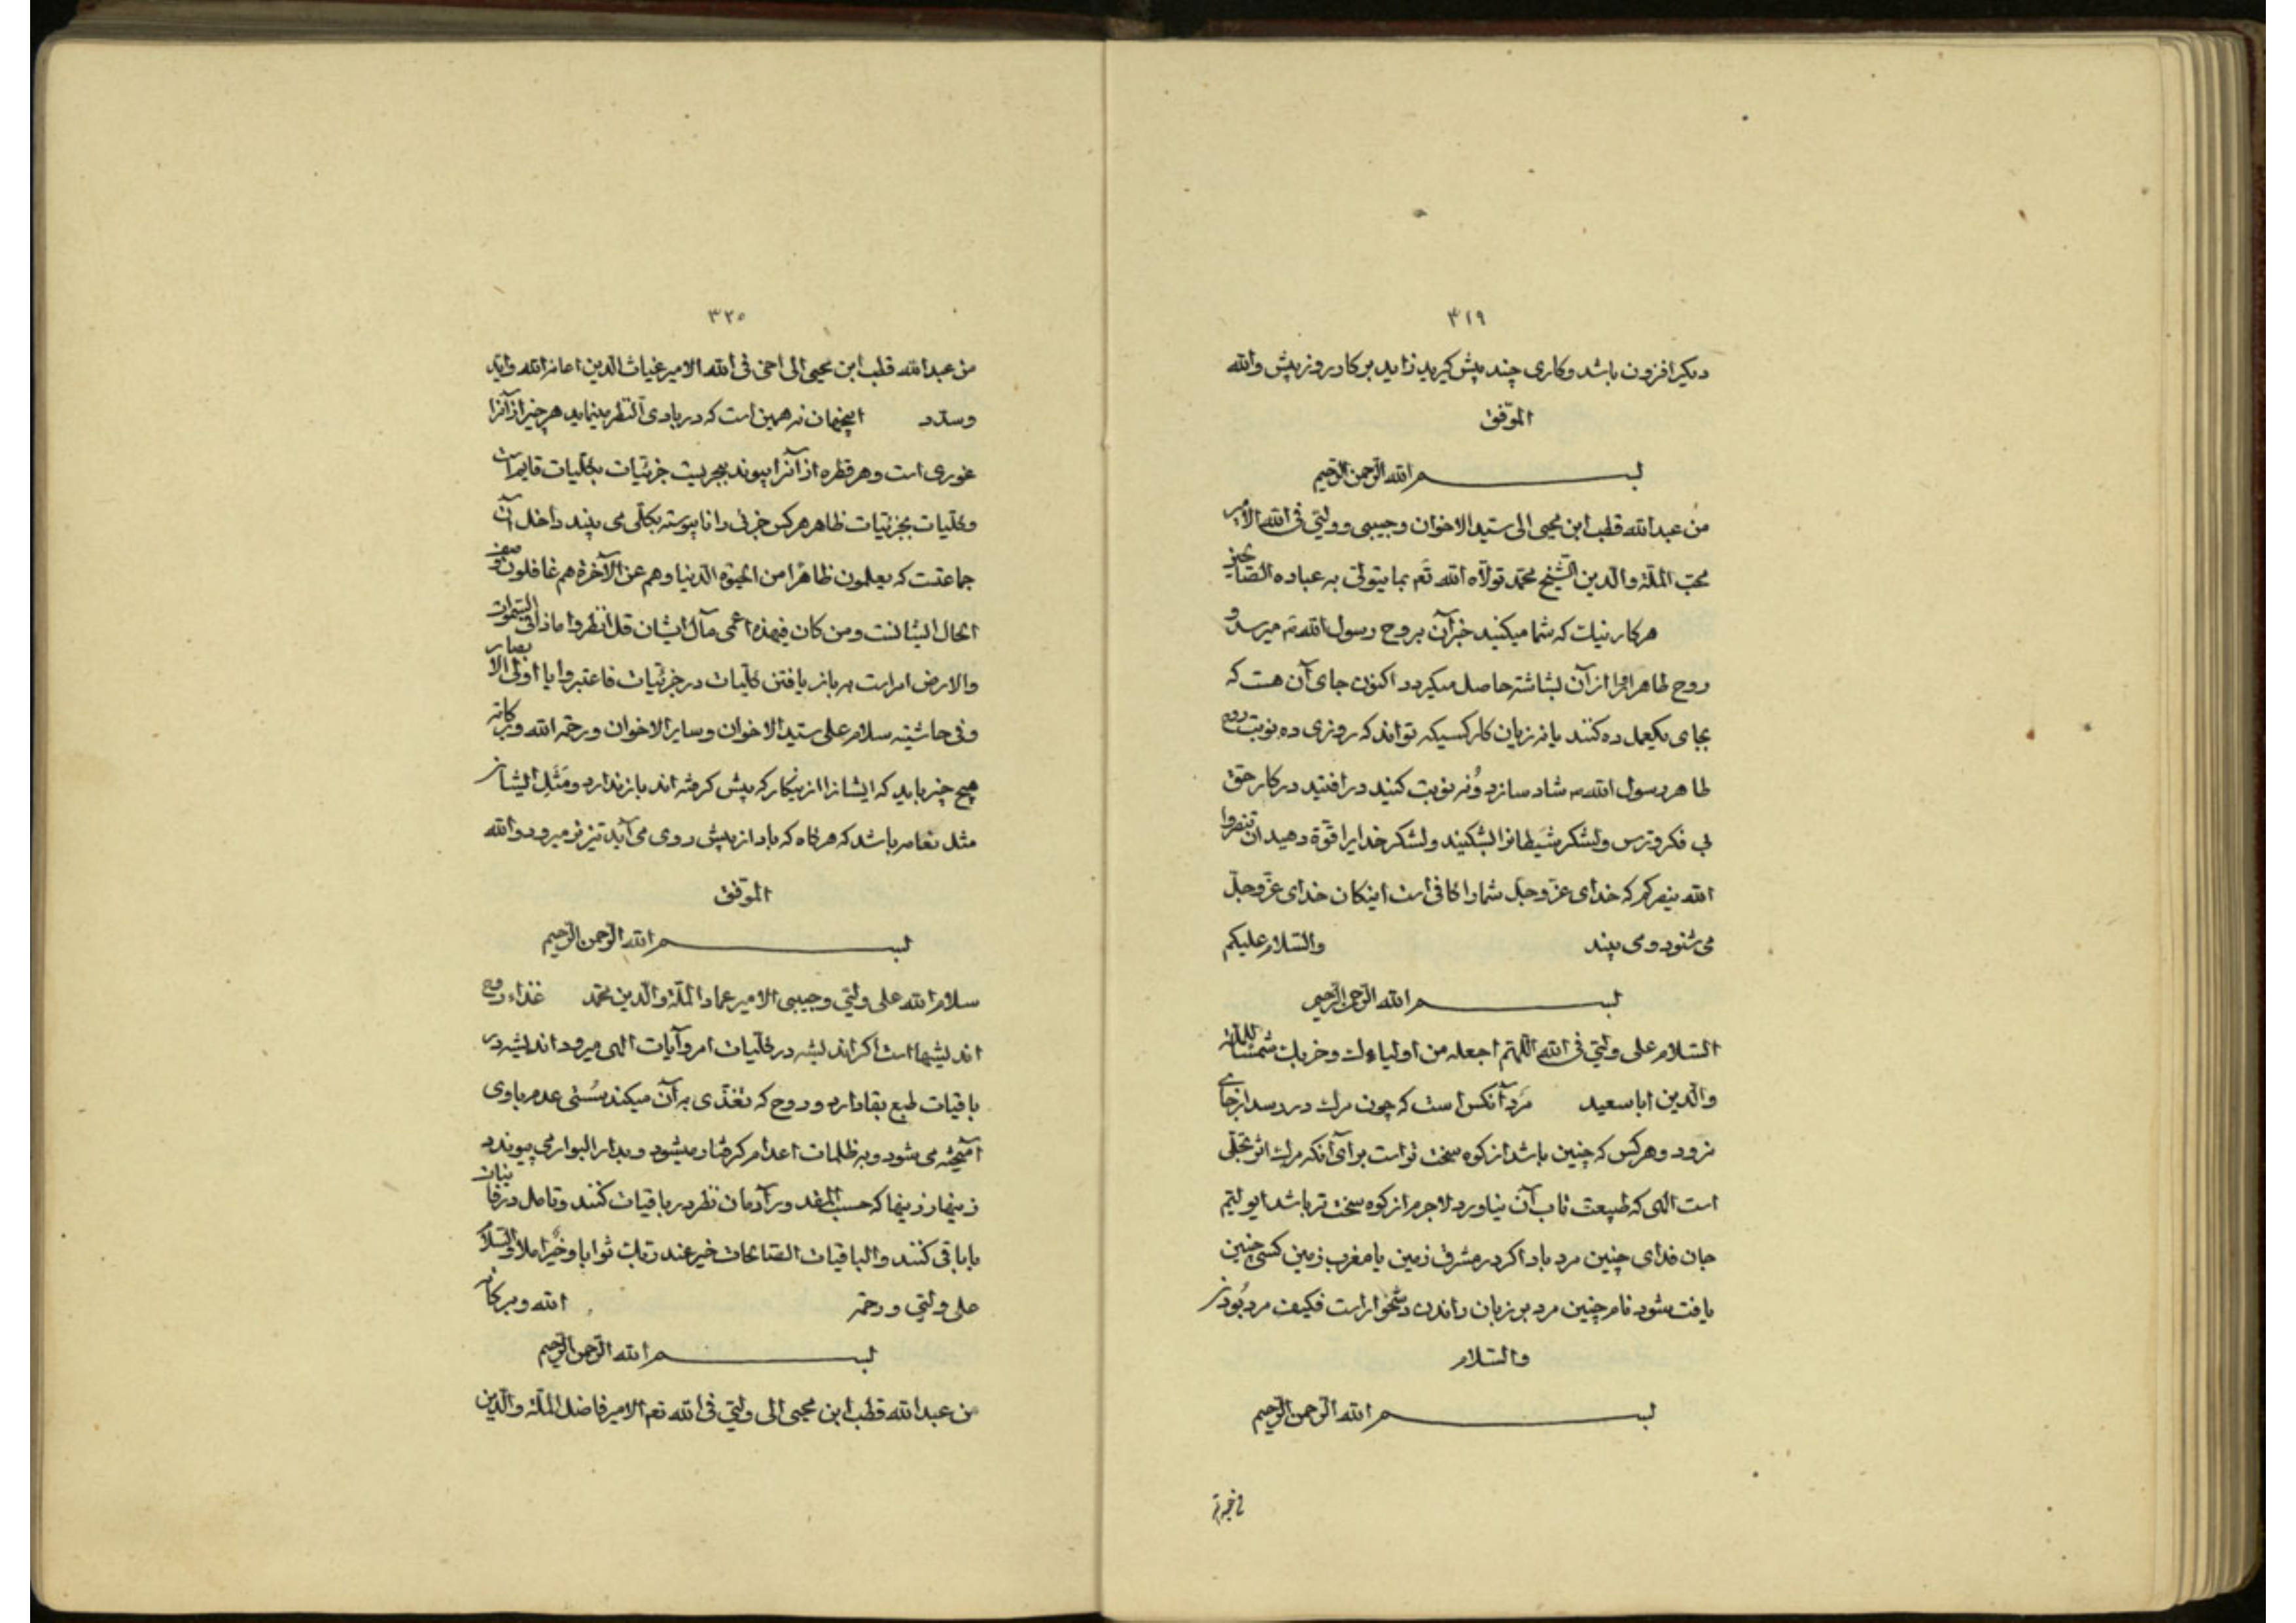 ۳۱۹
دیکر افزون باشد وکاری چند پیش کیرید زاید بر کار روز پیش والله
الموفق
بسم الله الرحمن الرحیم
من عبدالله قطب ابن محیی الی سید الاخوان وحبیبی وولیی فی الله الامیر
محب الملة والدین الشیخ محمد تولاه الله تع بما یتولی به عباده الصالحین
هر کار نیک که شما میکنید خبر آن بروح رسول الله ص میرسد و
روح طاهر او را از آن بشاشته حاصل میکردد اکنون جای آن هست که
بجای یکعمل ده کنند یا نه زیان کار کسیکه تواند که روزی ده نوبت روح
طاهر رسول الله ص شاد سازد ونه نوبت کنید در افتید در کار حق
بی فکر وترس ولشکر شیطانرا بشکنید ولشکر خدایرا قوة دهید ان تنصروا
الله ینصرکم که خدای عز وجل شما را کافی است اینکان خدای عز وجل
می شنود ومی بیند والسلام علیکم
بسم الله الرحمن الرحیم
السلام علی ولیی فی الله اللهم اجعله من اولیاءک وحزبک شمس الملة
والدین اباسعید مرد آنکس است که چون مرک در رسد از جای
نرود وهر کس که چنین باشد از کوه سخت تر است برای آنکه مرک اثر تجلی
است الهی که طبیعت تاب آن نیاورد لاجرم از کوه سخت تر باشد ای ولیم
جان فدای چنین مرد باد اکر در مشرق زمین یا مغرب زمین کسی چنین
یافت شود نام چنین مرد بر زبان راندن دشخوار است فکیف مرد بودن
والسلام
بسم الله الرحمن الرحیم
۳۲۰
من عبدالله قطب ابن محیی الی اخی فی الله الامیر غیاث الدین اعانه الله واید
وسدد اینجهان نه همین است که در بادی النظر مینماید هر چیز از آنرا
غوری است وهر قطره از آنرا پیوند ببحریست جزئیات بکلیات قایم است
وکلیات بجزئیات ظاهر هر کس جزئی را ناپیوسته بکلی می بیند داخل آن
جماعتست که یعلمون ظاهرا من الحیوة الدنیا وهم عن الآخرة هم غافلون وصف
الحال ایشانست ومن کان فی هذه اعمی مآل ایشان قل انظروا ماذا فی السموات
والارض امر است به باز یافتن کلیات در جزئیات فاعتبروا یا اولی الابصار
وفی حاشیته سلام علی سید الاخوان وسایر الاخوان ورحمة الله وبرکاته
هیچ چیز باید که ایشانرا از نیکار که پیش کرفته اند باز ندارد ومثل ایشان
مثل نعامه باشد که هر کاه که باد از پیش روی می آید تیز تر میرود والله
الموفق
بسم الله الرحمن الرحیم
سلام الله علی ولیی وحبیبی الامیر عماد الملة والدین محمد غذاء روح
اندیشها است اکر اندیشه در کلیات امر وآیات الهی میرود اندیشه در
باقیات طبع بقا دارد وروح که تغذی به آن میکند سنی عدم با وی
آمیخته می شود وبه ظلمات اعدام کرفتار میشود وبدار البوار می پیوندد
زینهار زینها که حسب المقدور آدمان نظر در باقیات کنند وتامل در فانیات
بباقی کنند والباقیات الصالحات خیر عند ربک ثوابا وخیر املا والسلام
علی ولیی ورحمة الله وبرکاته
بسم الله الرحمن الرحیم
من عبدالله قطب ابن محیی الی ولیی فی الله تعم الامیر فاضل الملة والدین